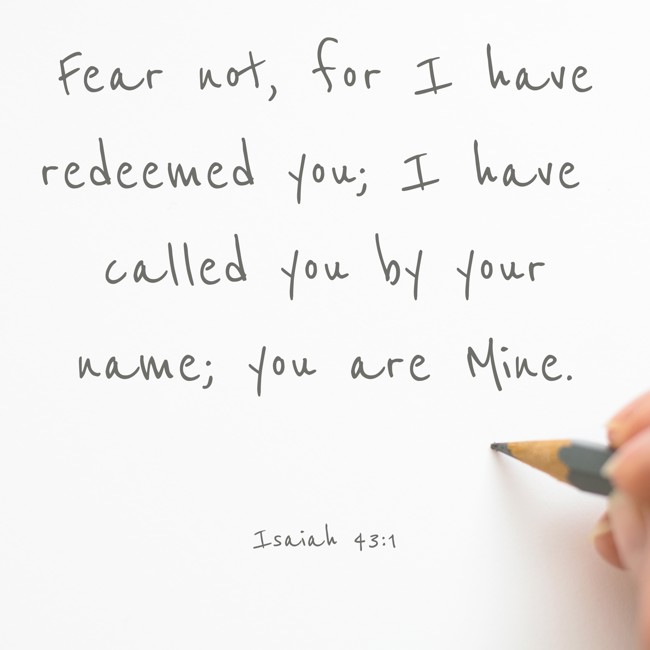 Fear not, for I have
redeemed you; I have
called you by your
name; you are Mine.
Isaiah 43:1